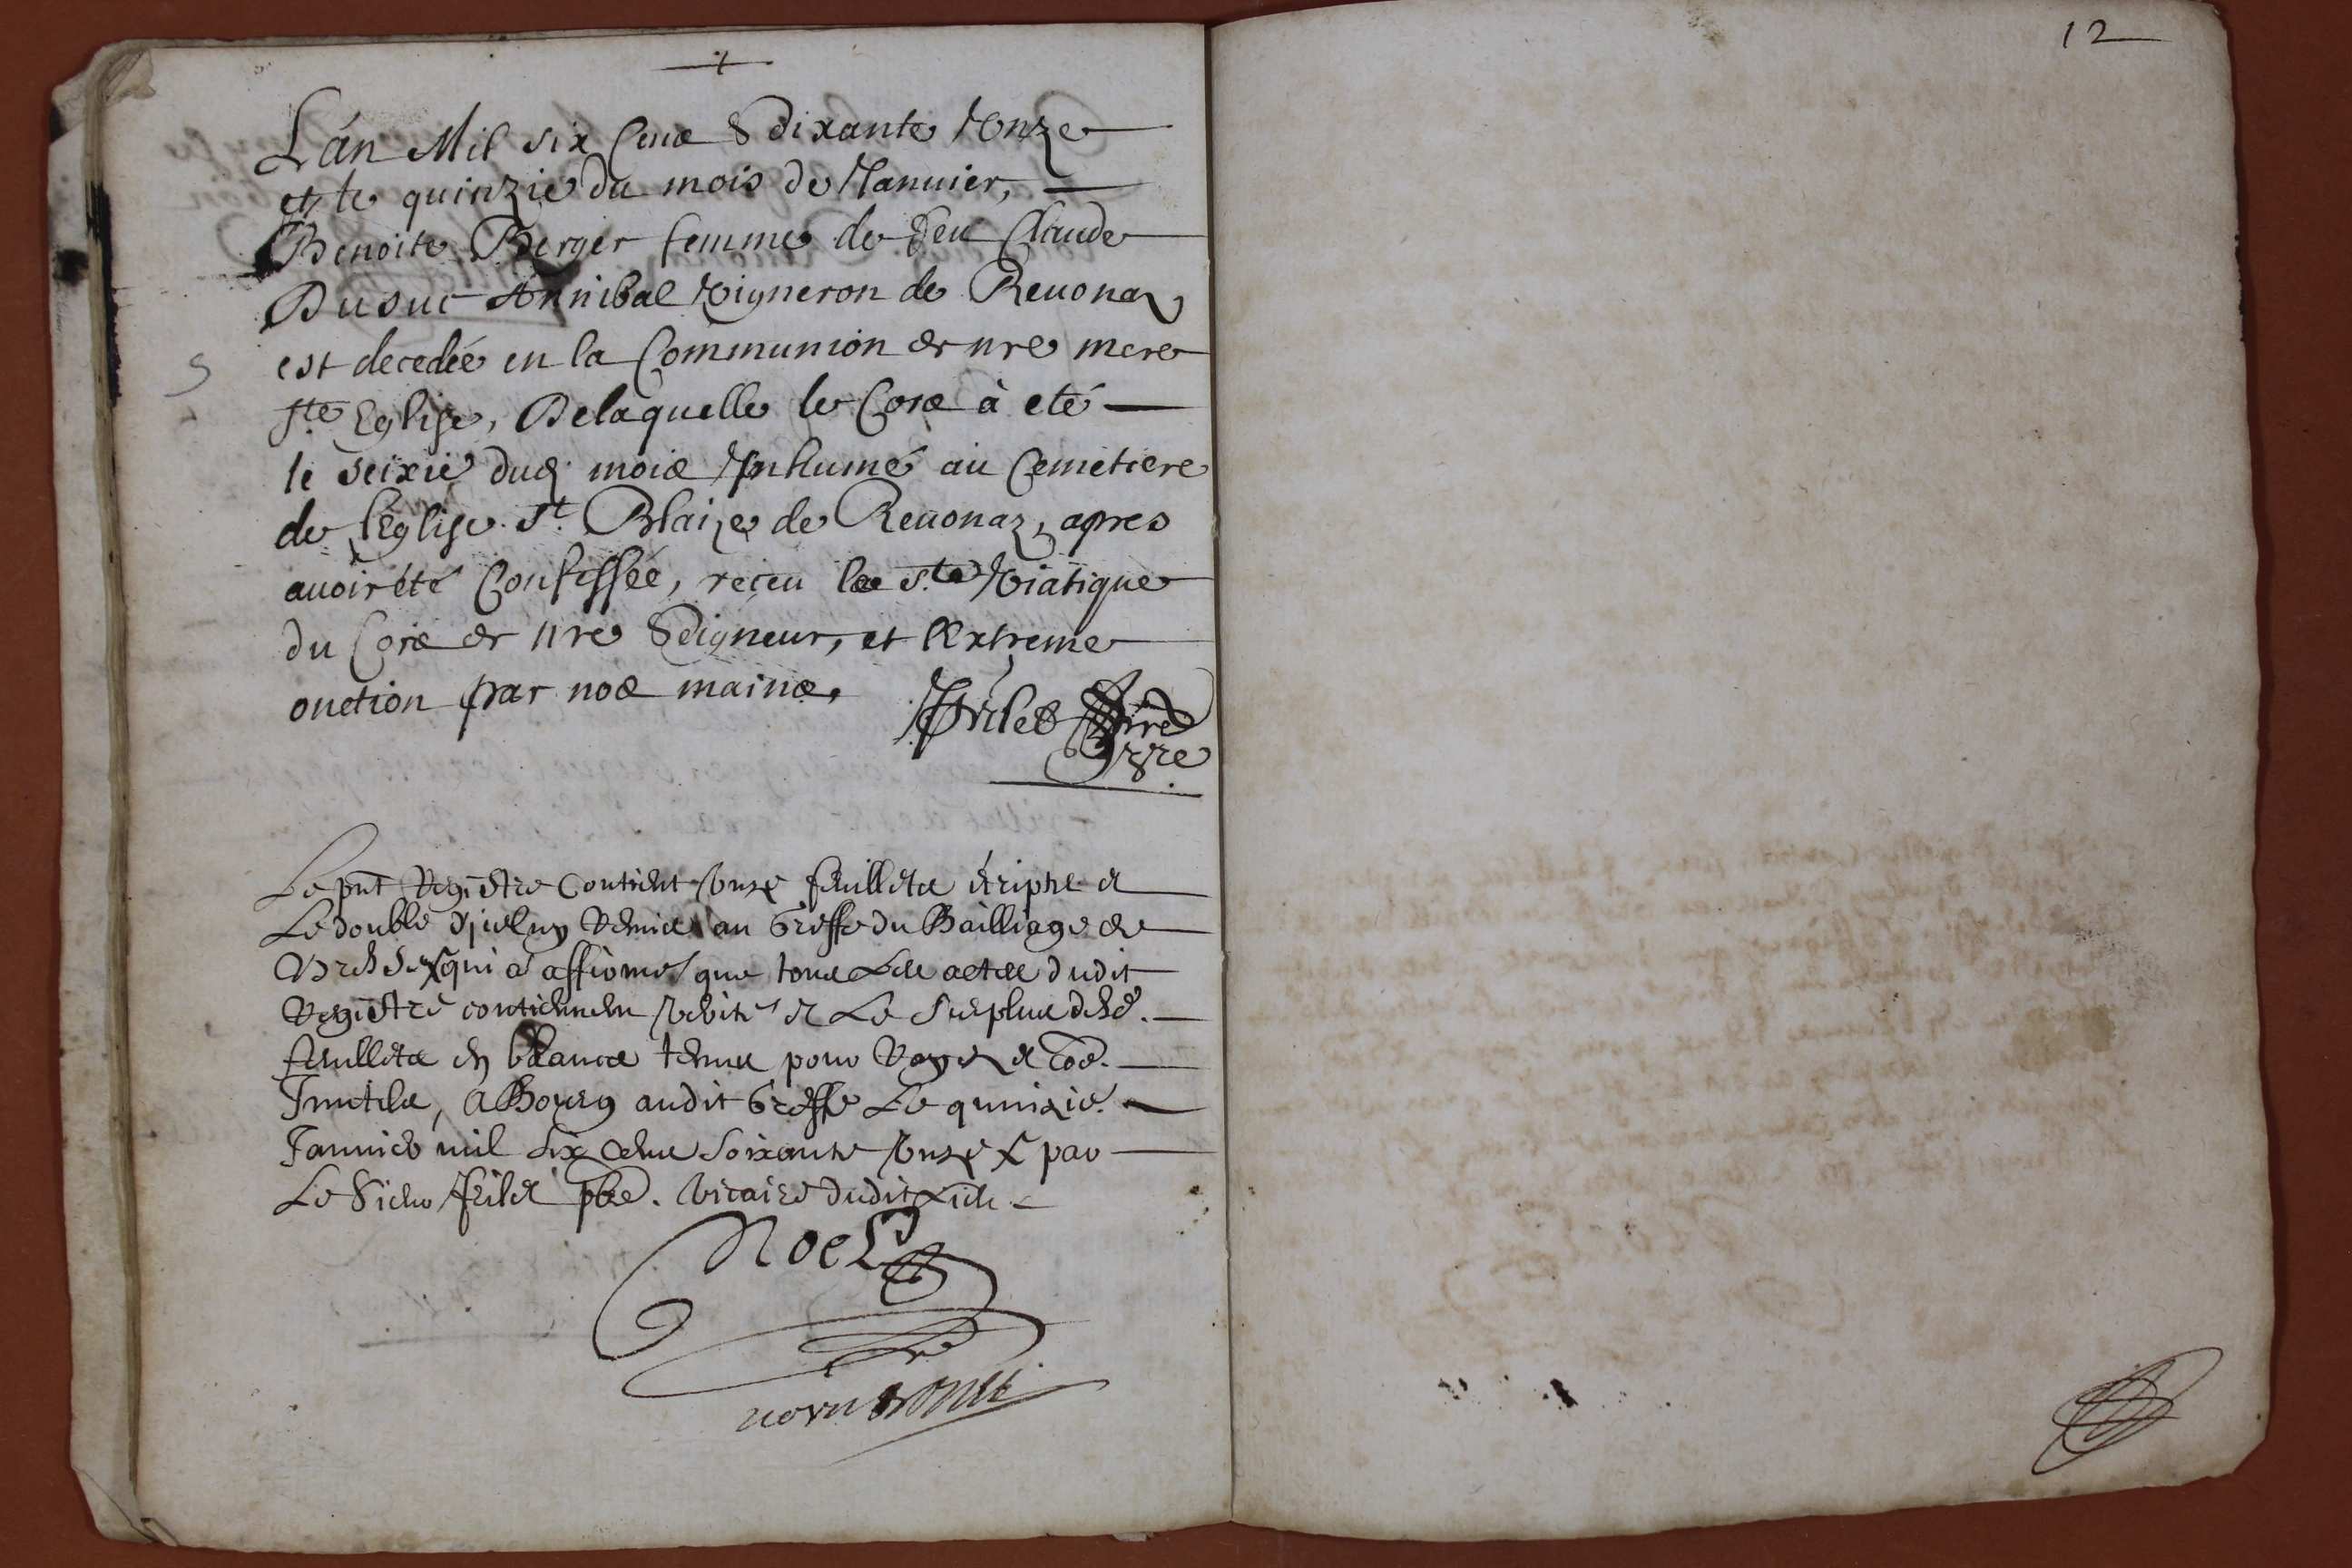 12
L'an Mil six Cens Soixante Onze
et le quinzie du mois de Ianuier,
Benoite Berger femme de feu Claude
Dusuc Annibal Vigneron de Reuonaz
est decedée en la Communion de nre mere
ste Eglise, De laquelle le Cors à eté
le seixie dud mois Inhumé au Cemetiere
de l'Eglise St Blaize de Reuonaz, apres
auoir été Confessée, reçeu le st Viatique
du Cors de nre Seigneur, et l'Extreme
onction par nos mains,
Le pnt Registre Contient onze feuillets escripts et
Le double d'jceluy Remis au Greffe du Bailliage de
qui a affirmé que tous Les actes dudit
Registre contiennent verité et Le surplus desd.
feuillets en blancs tenus pour Rayes et cōe.
Inutils, A Bourg audit Greffe Le quinzie.
Januier mil six cens soixante onze par
Le Sieur pbre. vicaire dudit Lieu
Noel